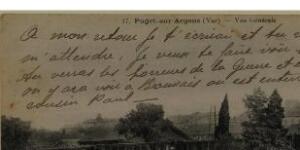 17. Puget-sur Argens (Var) — Vue Générale
A mon retour je t'écrirai et tu
m'attendre, je veux te faire voir
Tu verras les horreurs de la Guerre et
on y ara voir à Beauvais ou est enter
cousin Paul —